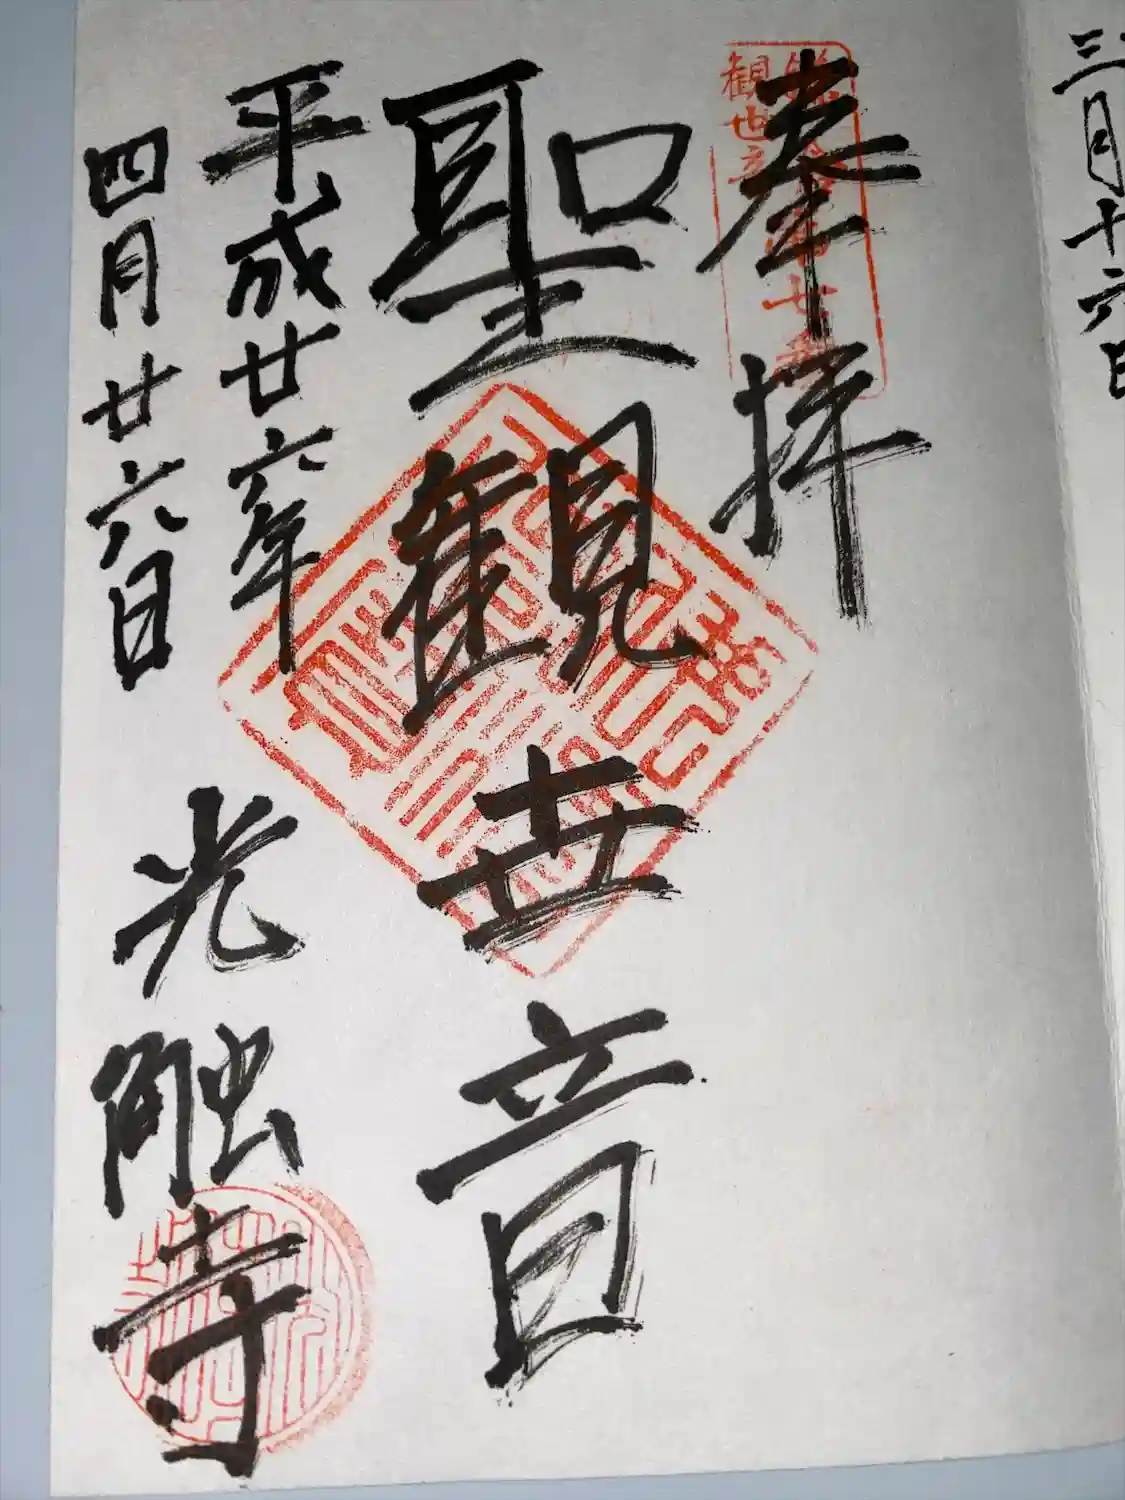 三月十六日
奉拝
聖観世音
平成廿六年
四月廿六日
光触寺